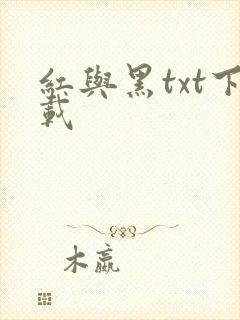 红與黑txt下
載
木嬴